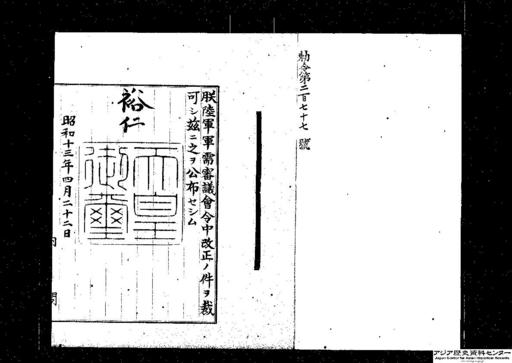 勅令第二百七十七號
朕陸軍軍需審議會令中改正ノ件ヲ裁
可シ茲ニ之ヲ公布セシム
裕仁
天皇
御璽
昭和十三年四月二十二日
内閣
アジア歴史資料センター
Japan Center for Asian Historical Records